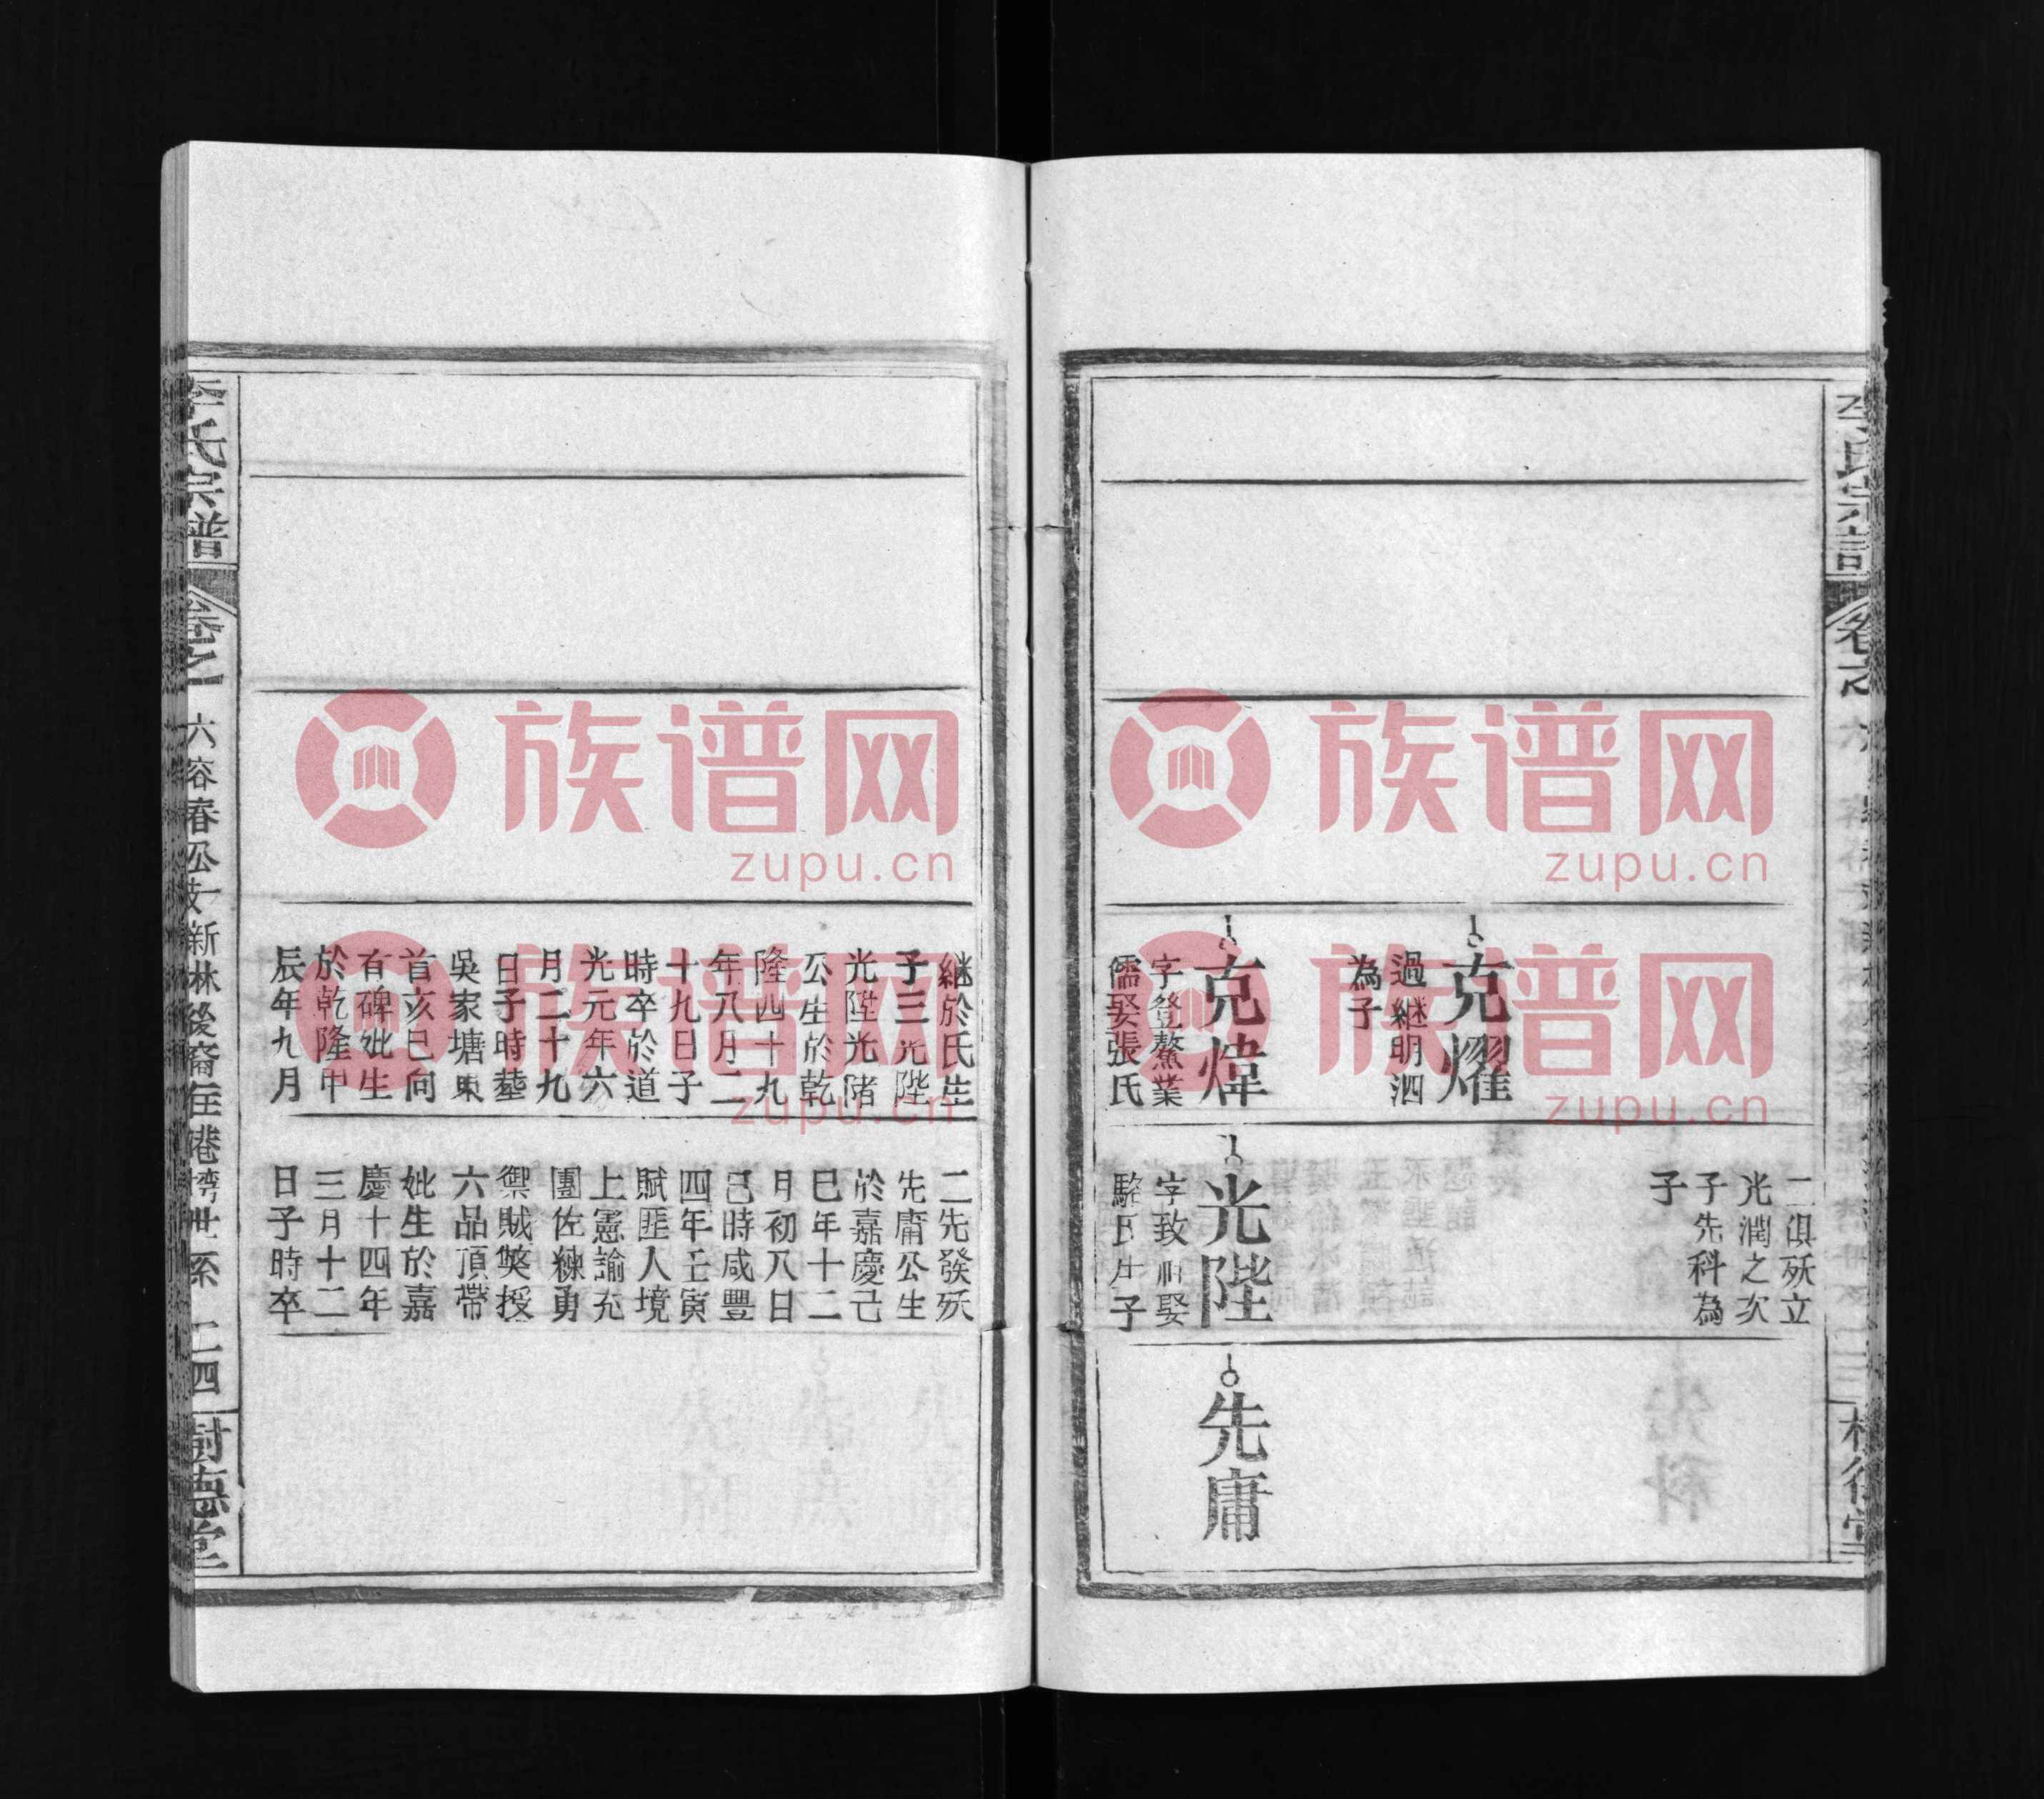 二俱殀立
光潤之次
子先科為
子
克燿
過継明泗
為子
克煒
字登鰲業
儒娶張氏
光陛
字致和娶
駱氏生子
先庸
継於氏生
子三光陛
光陞光陼
公生於乾
隆四十九
年八月二
十九日子
時卒於道
光元年六
月二十九
日子時塟
吳家塘東
首亥巳向
有碑妣生
於乾隆甲
辰年九月
二先發殀
先庸公生
於嘉慶己
巳年十二
月初八日
巳時咸豐
四年壬寅
賦匪人境
上憲諭充
團佐練勇
禦賊獎授
六品頂帶
妣生於嘉
慶十四年
三月十二
日子時卒
李氏宗譜
卷之一
六容春公支新林後裔在港垮世系
二四
樹德堂
族谱网
zupu.cn
族谱网
zupu.cn
族谱网
zupu.cn
族谱网
zupu.cn